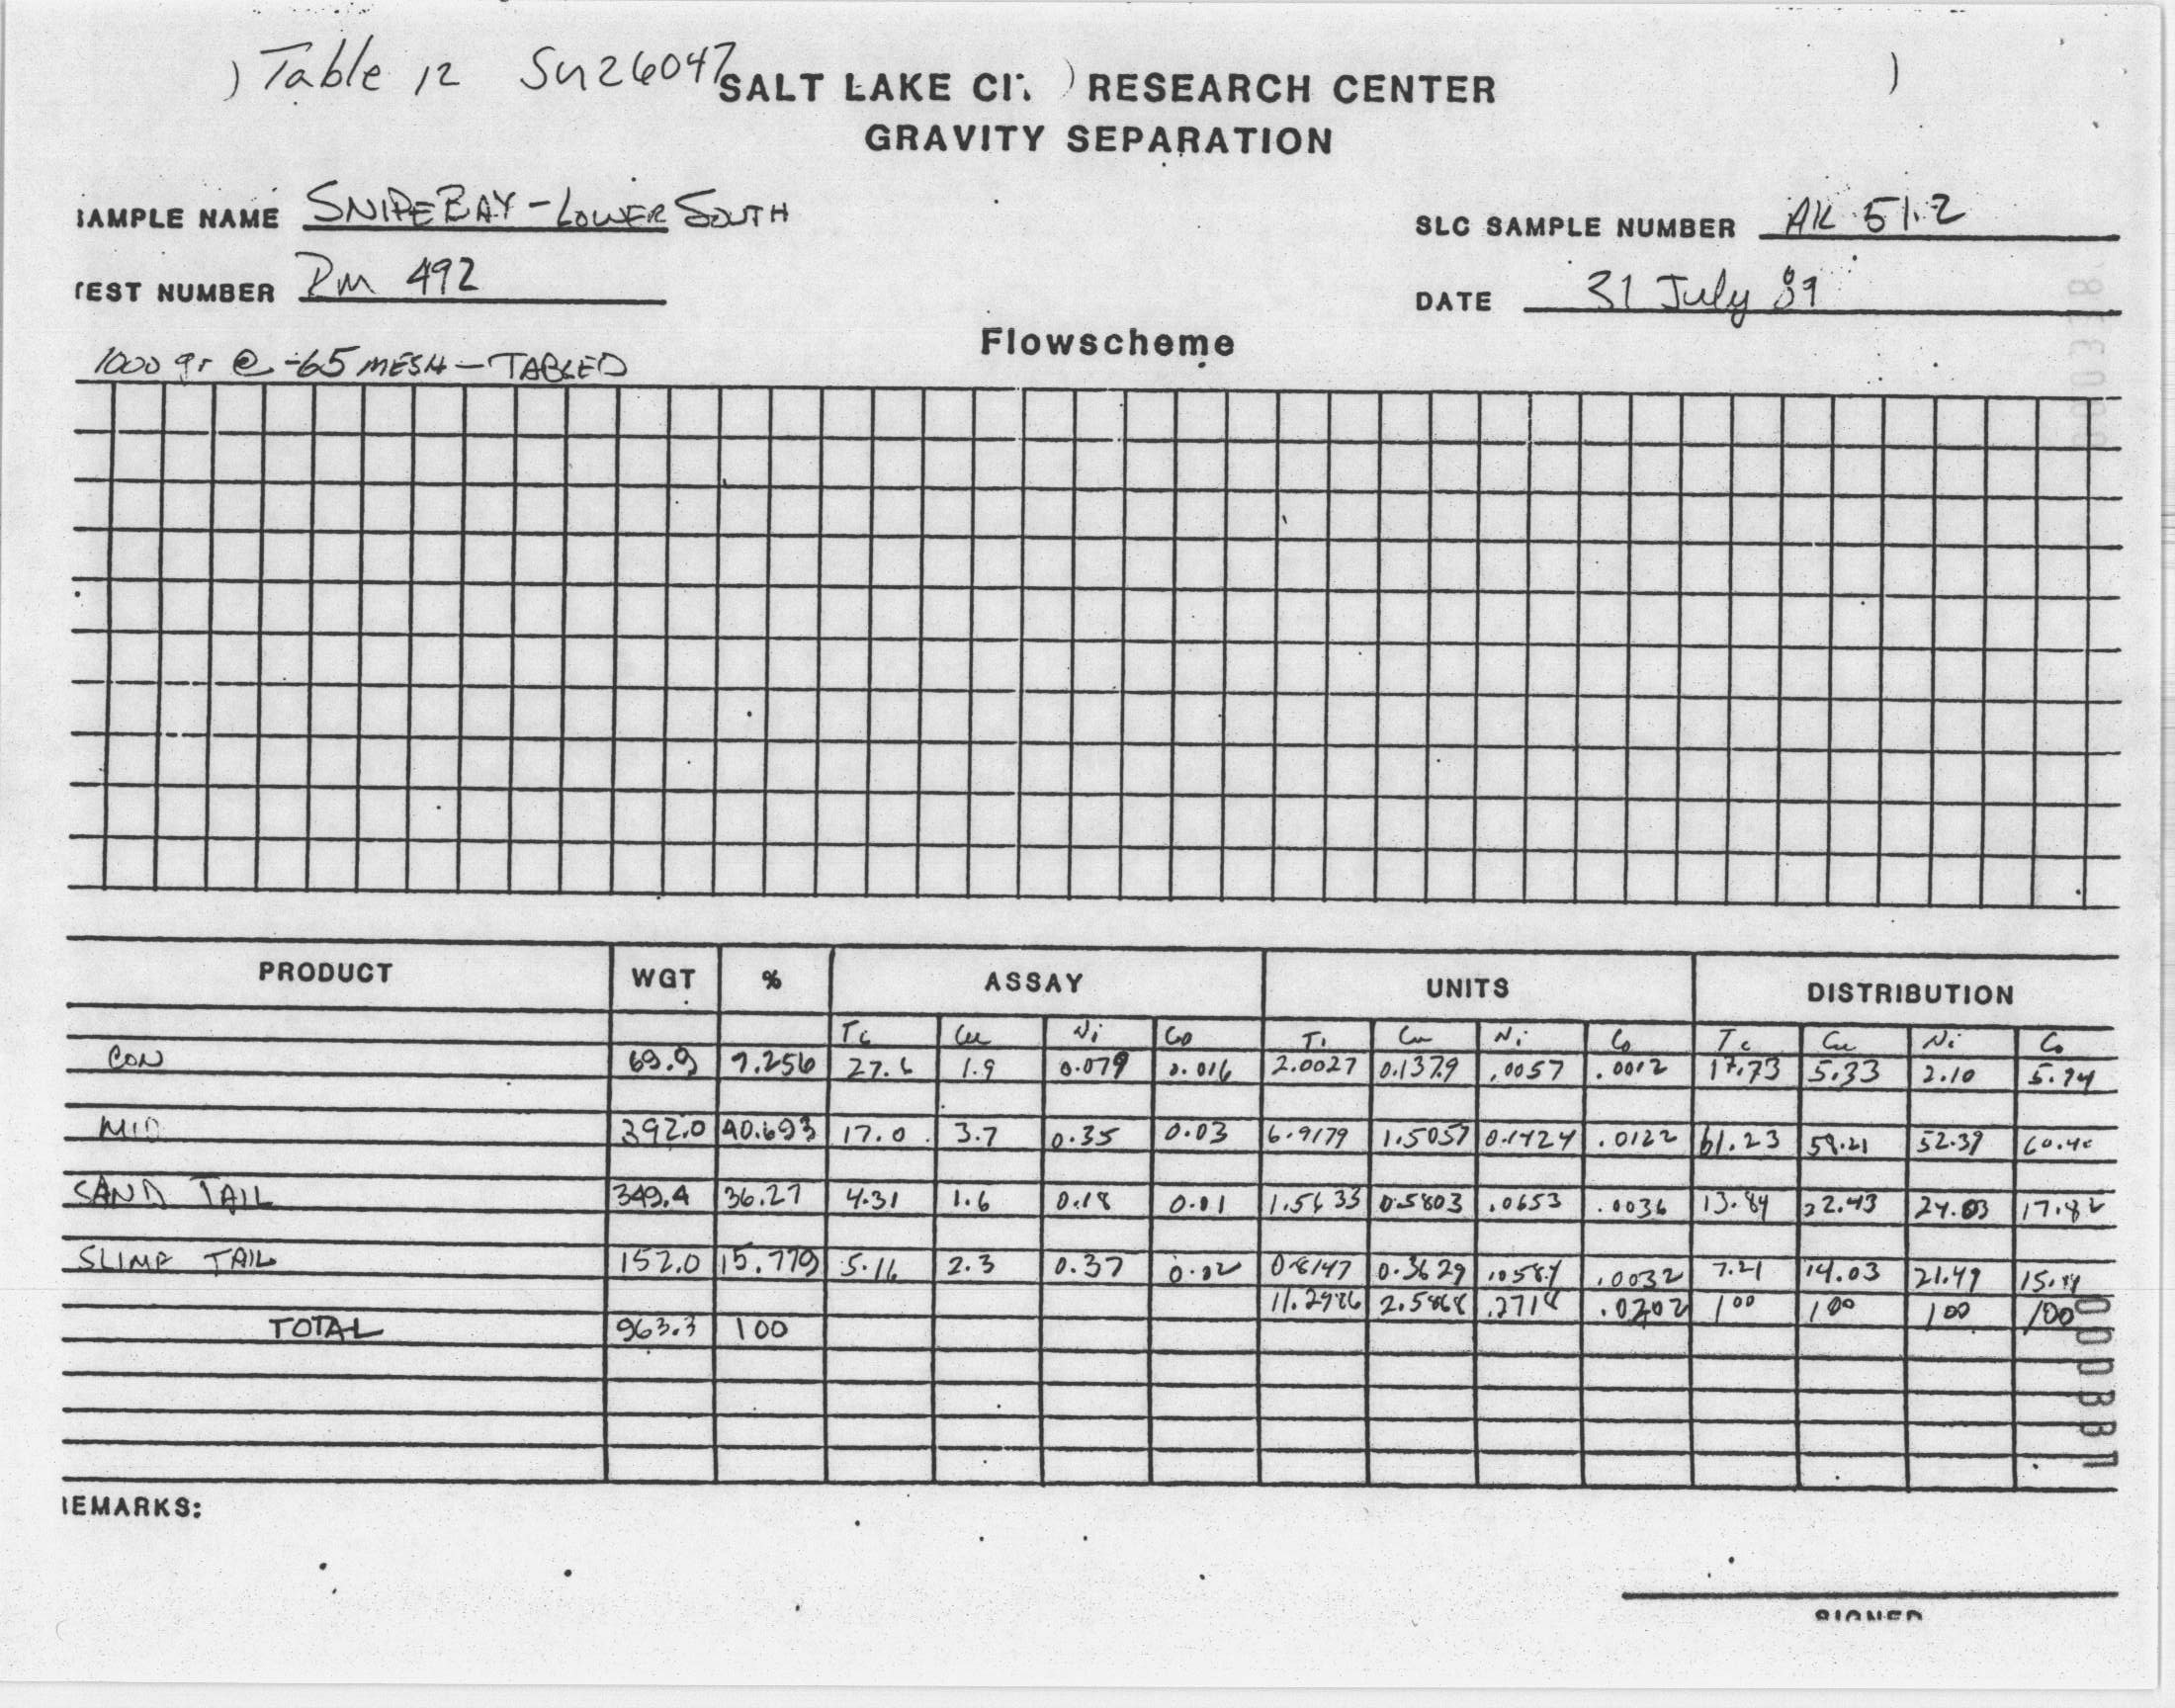 Table 12 Sn26047
SALT LAKE CI RESEARCH CENTER
GRAVITY SEPARATION
AMPLE NAME SNIPE BAY - LOWER SOUTH
SLC SAMPLE NUMBER AK 51.2
EST NUMBER 492
DATE 31 July 89
Flowscheme
1000 gr @ -65 MESH - TABLED
PRODUCT WGT % ASSAY UNITS DISTRIBUTION
Cu Ni Co Cu Ni Co Cu Ni Co
CON 69.9 7.256 27.6 1.9 0.079 0.016 2.0027 0.1379 .0057 .0012 17.73 5.33 2.10 5.94
MID 392.0 40.693 17.0 3.7 0.35 0.03 6.9179 1.5057 0.1424 .0122 61.23 58.21 52.39 60.40
SAND TAIL 349.4 36.27 4.31 1.6 0.18 0.01 1.5633 0.5803 .0653 .0036 13.84 22.43 24.03 17.82
SLIME TAIL 152.0 15.779 5.16 2.3 0.37 0.02 0.8147 0.3629 .0584 .0032 7.21 14.03 21.49 15.84
11.2986 2.5868 .2718 .0202 100 100 100 100
TOTAL 963.3 100
EMARKS:
SIGNED